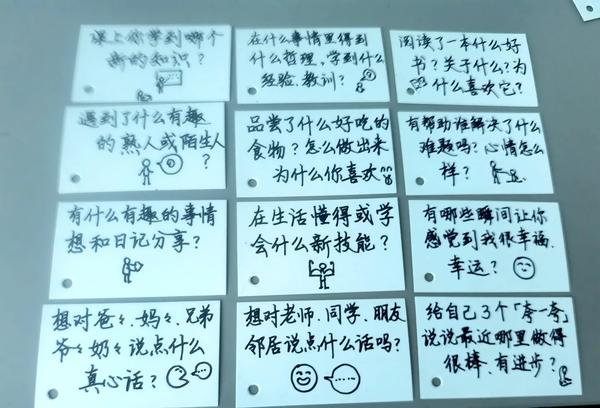 课上你学到哪个
新的知识？
在什么事情里得到
什么哲理，学到什么
经验、教训？
阅读了一本什么好
书？关于什么？为
什么喜欢它？
遇到了什么有趣
的熟人或陌生人
？
品尝了什么好吃的
食物？怎么做出来
为什么你喜欢
有帮助谁解决了什么
难题吗？心情怎么
样？
有什么有趣的事情
想和日记分享？
在生活懂得或学
会什么新技能？
有哪些瞬间让你
感觉到我很幸福、
幸运？
想对爸々、妈々、兄弟
爷々奶々说点什么
真心话？
想对老师、同学、朋友
邻居说点什么话吗？
给自己3个「夸一夸」
说说最近哪里做得
很棒、有进步？